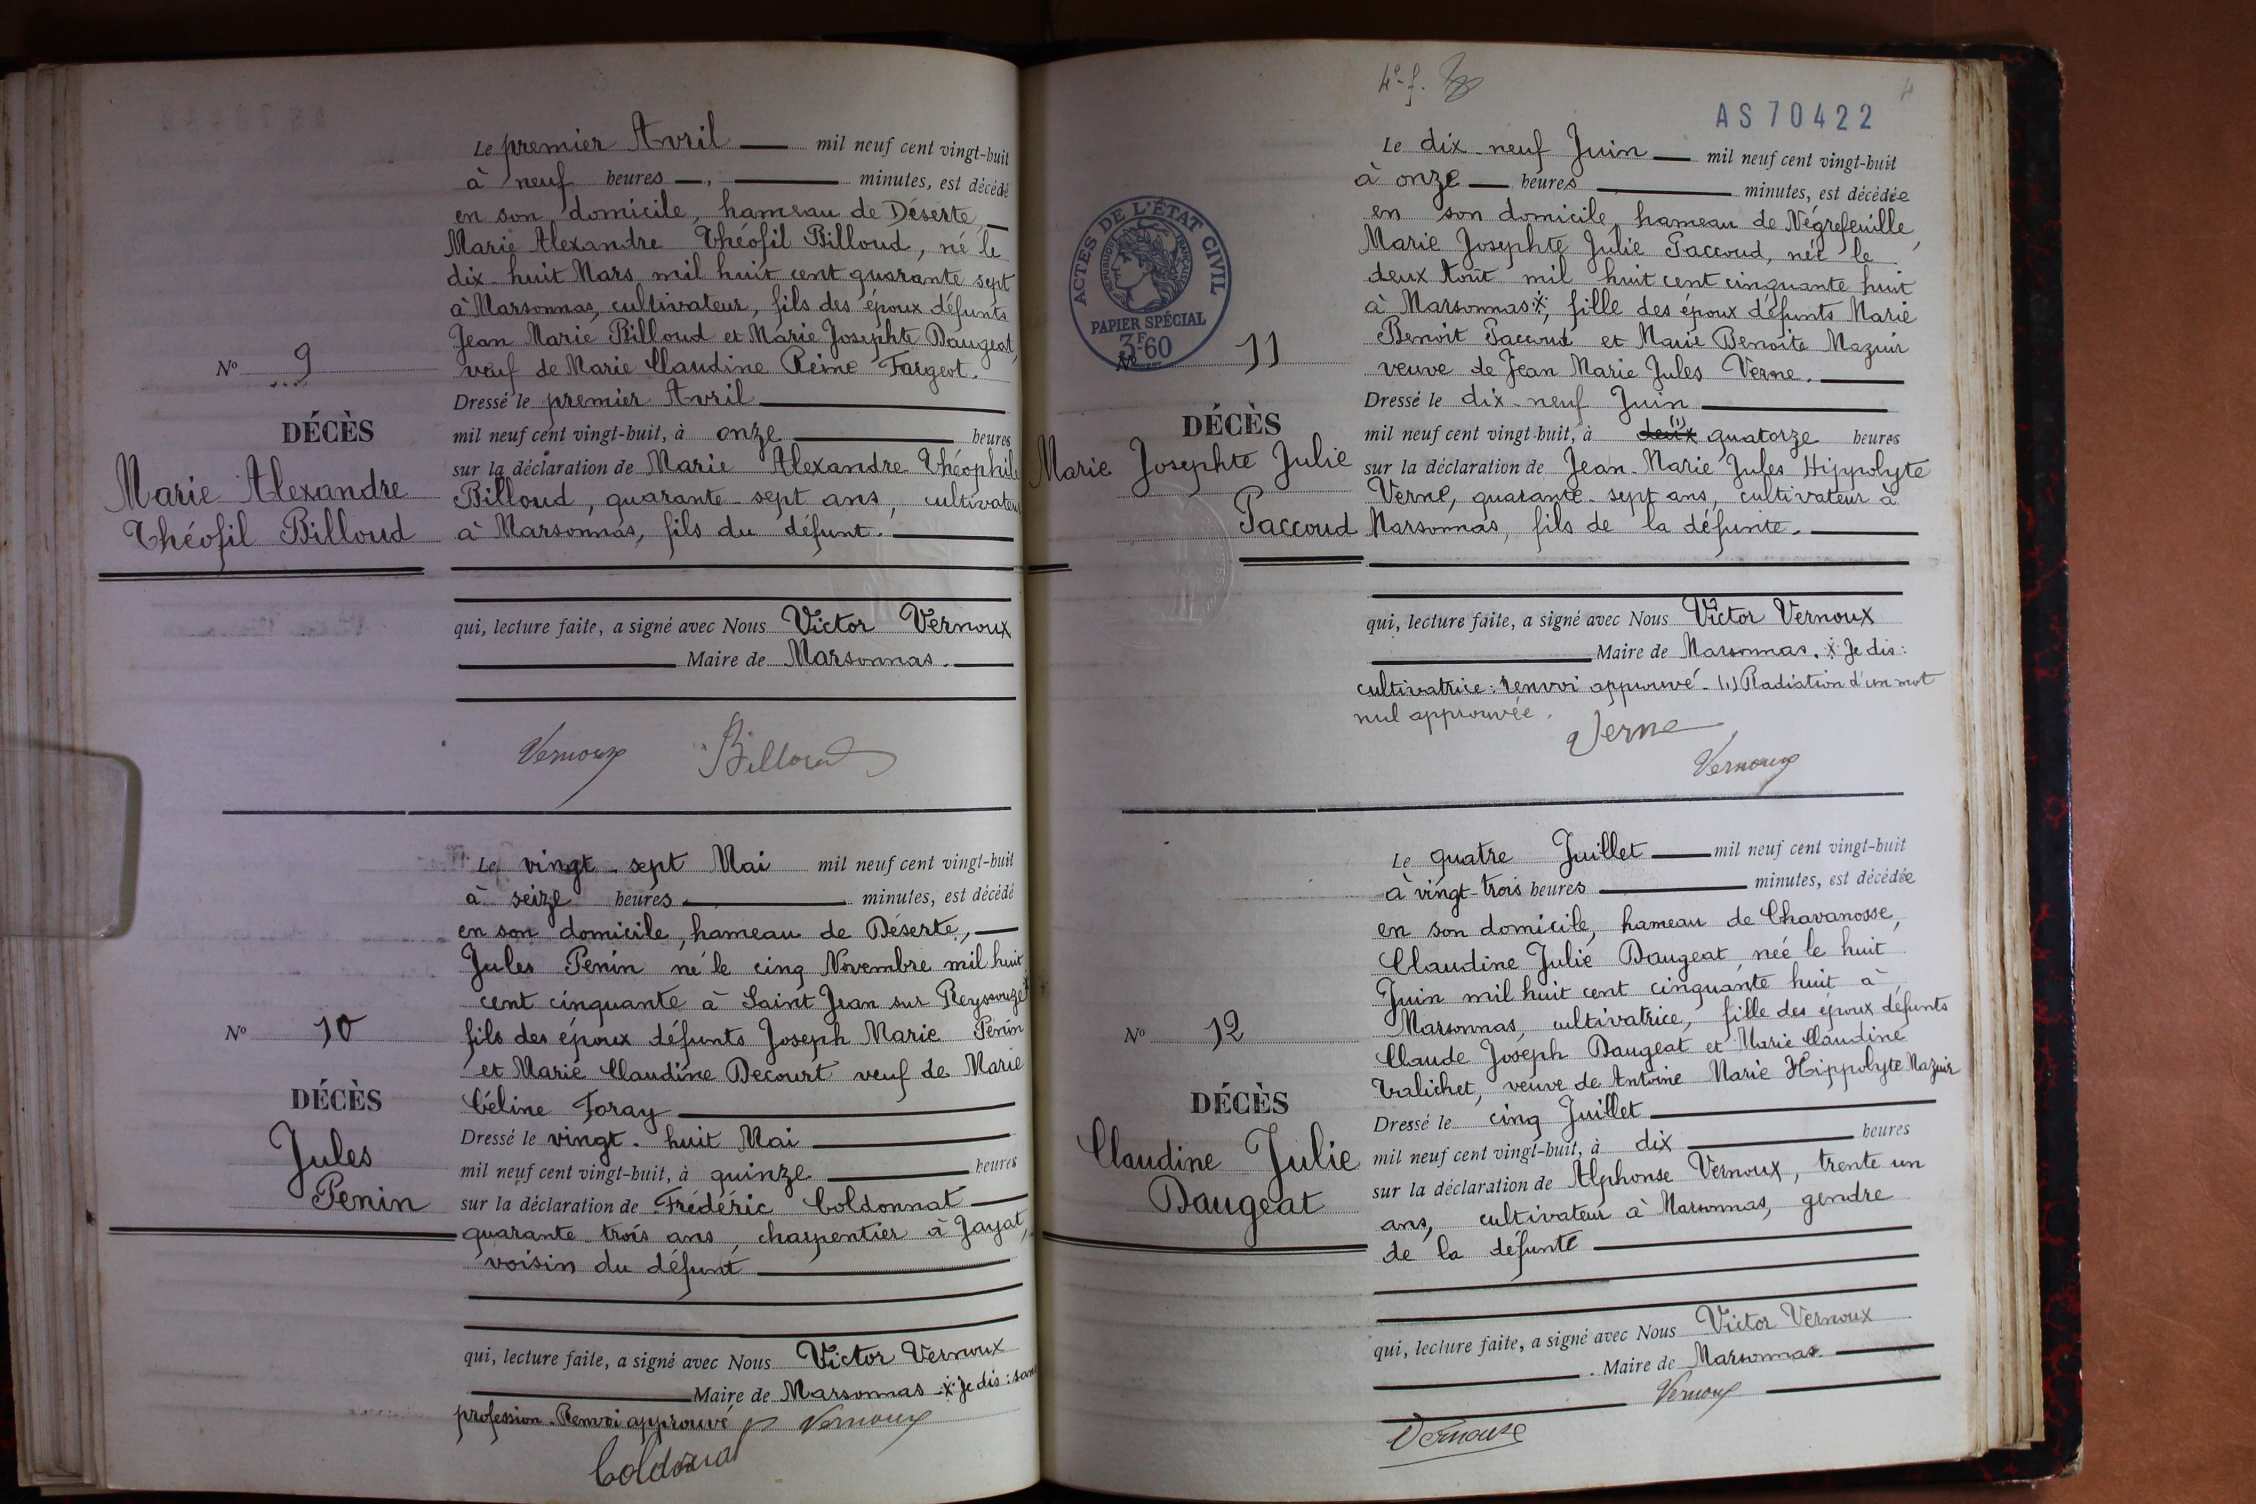 Le premier Avril mil neuf cent vingt-huit
à neuf heures, minutes, est décédé
en son domicile, hameau de Déserte,
Marie Alexandre Théofil Billoud, né le
dix-huit Mars mil huit cent quarante sept
à Marsonnas, cultivateur, fils des époux défunts
Jean Marie Billoud et Marie Josephte Daugeat,
veuf de Marie Claudine Reine Fargeot.
Nº 9
Dressé le premier Avril
DÉCÈS
mil neuf cent vingt-huit, à onze heures
Marie Alexandre
Théofil Billoud
sur la déclaration de Marie Alexandre Théophile
Billoud, quarante-sept ans, cultivateur
à Marsonnas, fils du défunt.
qui, lecture faite, a signé avec Nous Victor Vernoux
Maire de Marsonnas.
Vernoux Billoud
Le vingt-sept Mai mil neuf cent vingt-huit
à seize heures minutes, est décédé
en son domicile, hameau de Déserte,
Jules Penin né le cinq Novembre mil huit
cent cinquante à Saint Jean sur Reyssouze
Nº 10
fils des époux défunts Joseph Marie Penin
et Marie Claudine Decourt veuf de Marie
Céline Foray
DÉCÈS
Jules
Penin
Dressé le vingt-huit Mai
mil neuf cent vingt-huit, à quinze heures
sur la déclaration de Frédéric Coldonnat
quarante-trois ans, charpentier à Jayat,
voisin du défunt
qui, lecture faite, a signé avec Nous Victor Vernoux
Maire de Marsonnas - x Je dis : sans
profession. Renvoi approuvé Vernoux
4e f.
4
AS 70422
ACTES DE L'ÉTAT CIVIL
RÉPUBLIQUE FRANÇAISE
PAPIER SPÉCIAL
3F60
Le dix-neuf Juin mil neuf cent vingt-huit
à onze heures minutes, est décédée
en son domicile, hameau de Négrefeuille,
Marie Josephte Julie Paccoud, née le
deux Août mil huit cent cinquante huit
à Marsonnas x, fille des époux défunts Marie
Benoit Paccoud et Marie Benoite Mazuir
Nº 11
veuve de Jean Marie Jules Verne.
Dressé le dix-neuf Juin
DÉCÈS
Marie Josephte Julie
Paccoud
mil neuf cent vingt-huit, à deux (1) quatorze heures
sur la déclaration de Jean-Marie Jules Hippolyte
Verne, quarante-sept ans, cultivateur à
Marsonnas, fils de la défunte.
qui, lecture faite, a signé avec Nous Victor Vernoux
Maire de Marsonnas. x Je dis :
cultivatrice : renvoi approuvé - (1) Radiation d'un mot
nul approuvée.
Verne
Vernoux
Le quatre Juillet mil neuf cent vingt-huit
à vingt-trois heures minutes, est décédée
en son domicile, hameau de Chavanosse,
Claudine Julie Daugeat, née le huit
Juin mil huit cent cinquante huit à
Marsonnas, cultivatrice, fille des époux défunts
Nº 12
Claude Joseph Daugeat et Marie Claudine
Tralichet, veuve de Antoine Marie Hippolyte Mazuir
DÉCÈS
Claudine Julie
Daugeat
Dressé le cinq Juillet
mil neuf cent vingt-huit, à dix heures
sur la déclaration de Alphonse Vernoux, trente un
ans, cultivateur à Marsonnas, gendre
de la défunte
qui, lecture faite, a signé avec Nous Victor Vernoux
Maire de Marsonnas.
Vernoux
Vernoux